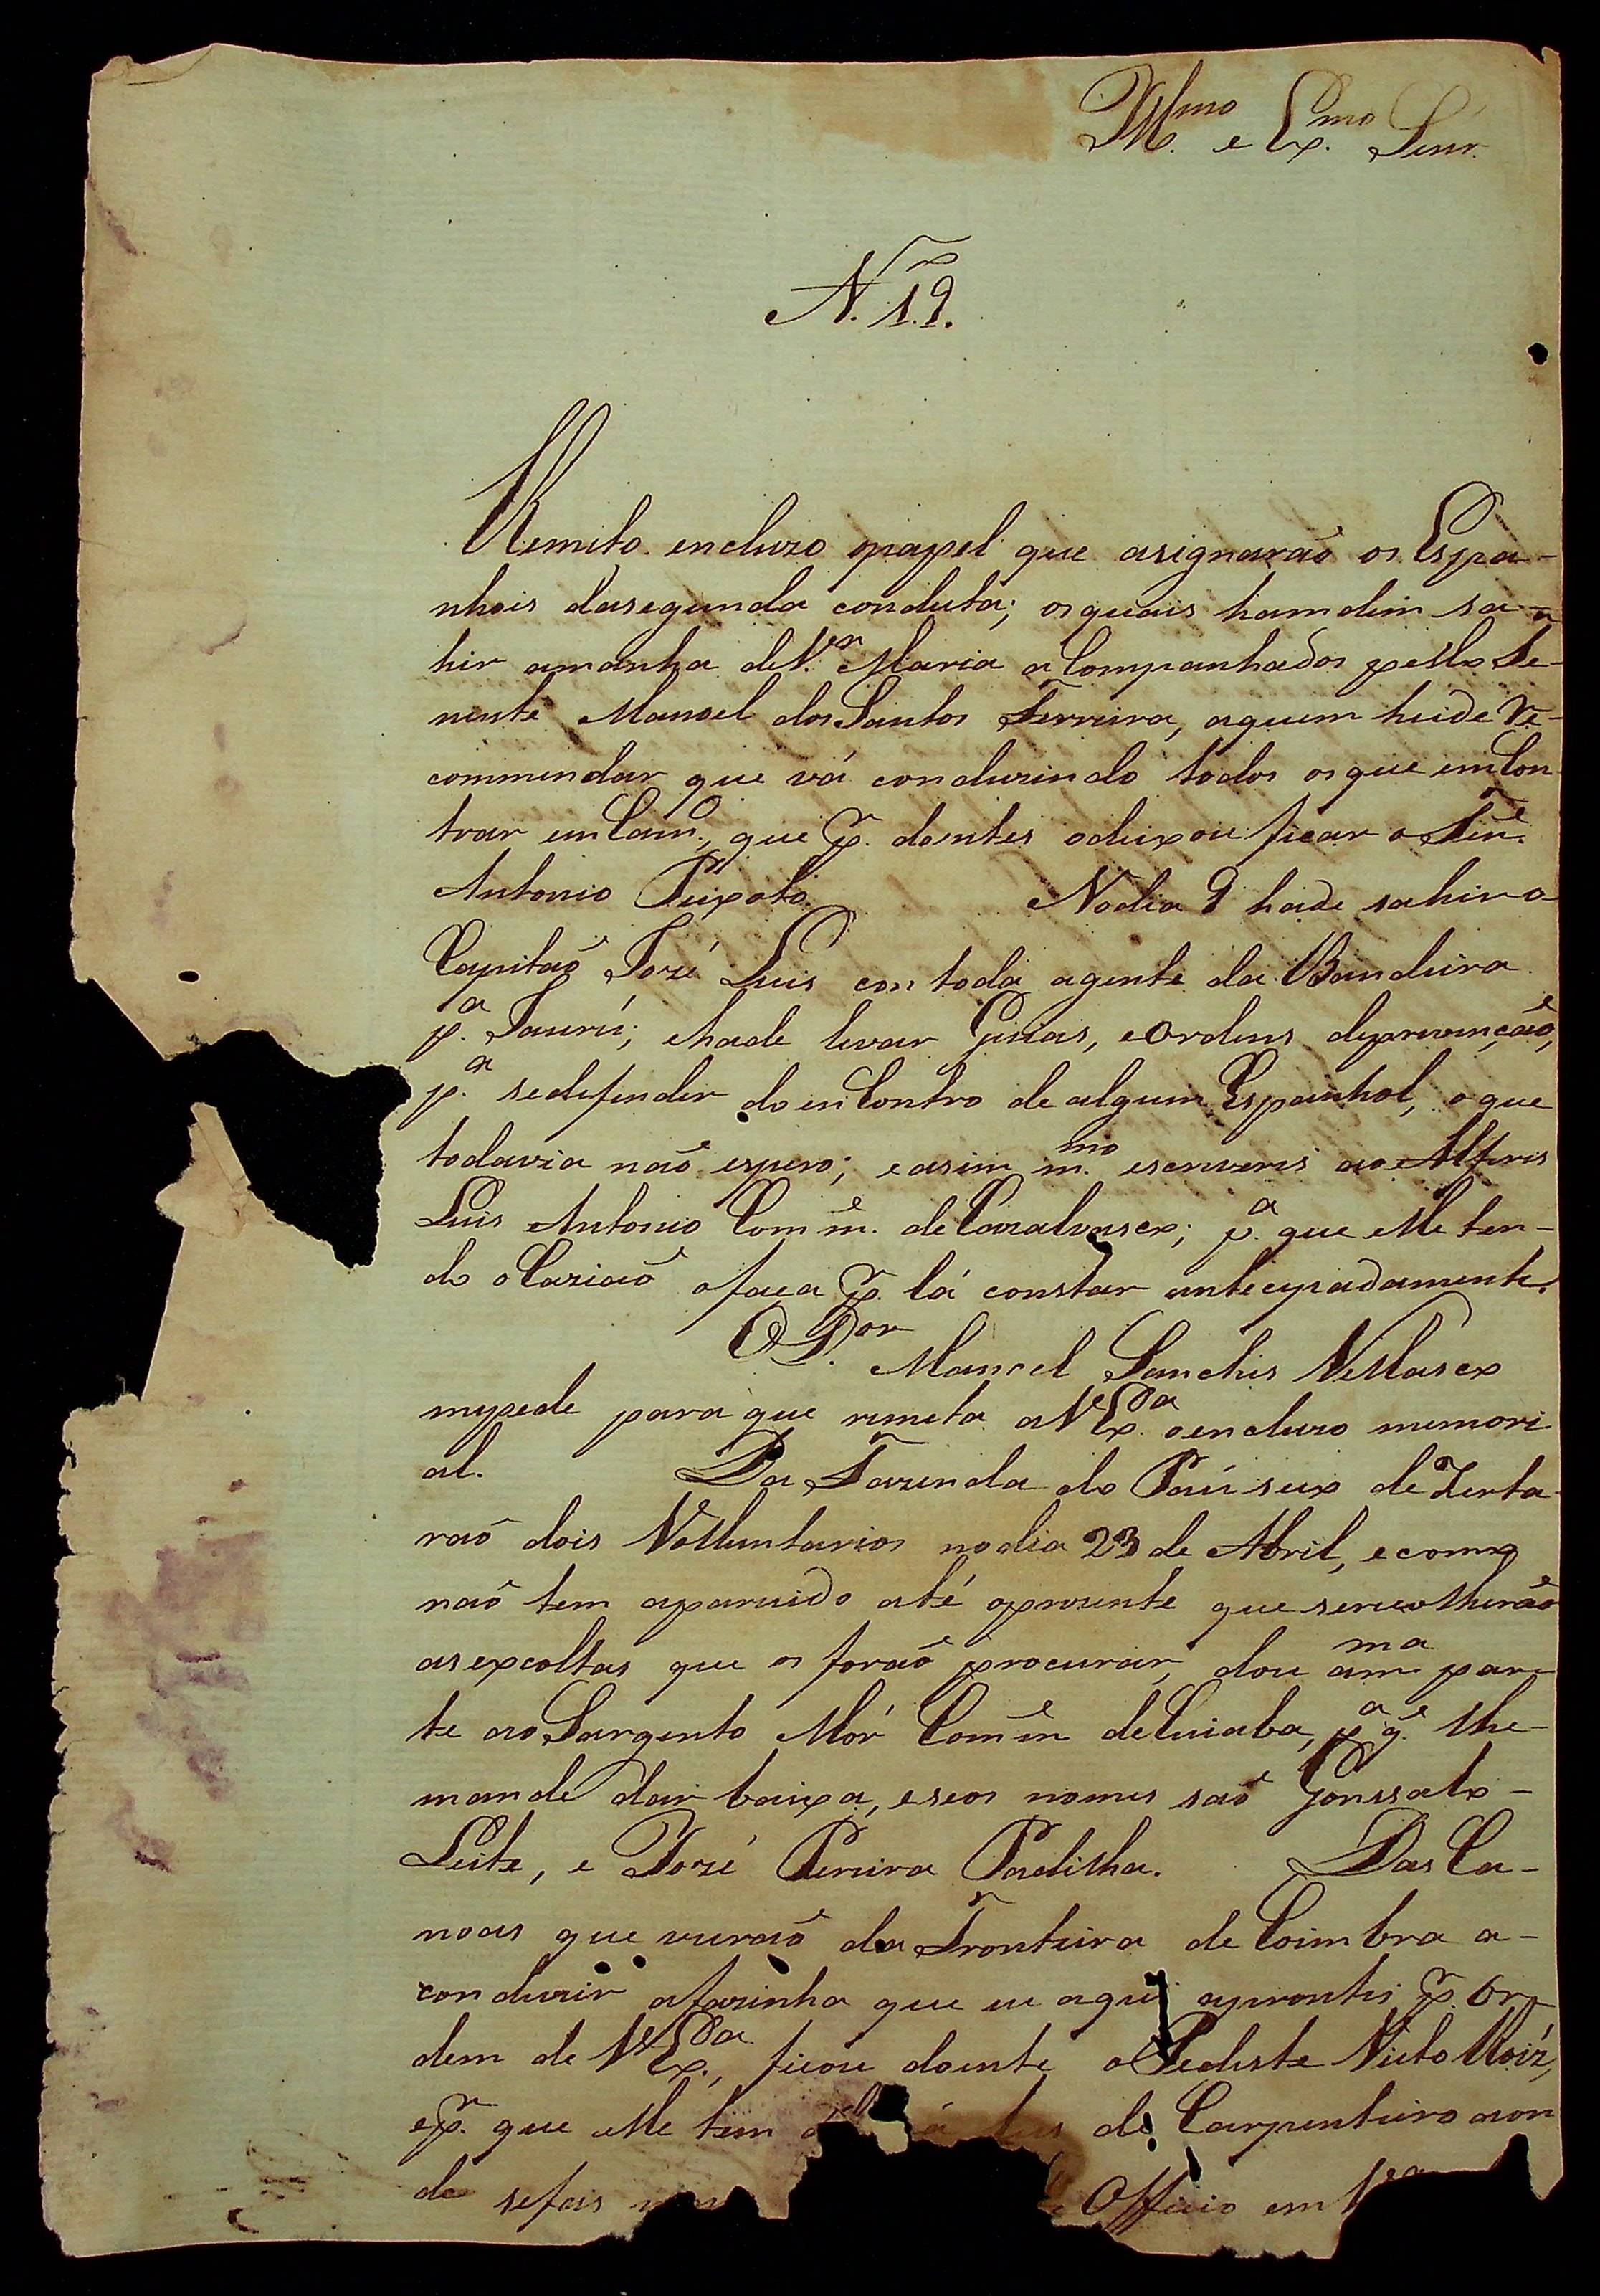 Ill.mo e Ex.mo Senr.
N. 19.
Remeto encluzo papel que asignaraõ os Espa-
nhois dasegunda conduta; osquais hamdem sa-
hir amanha de V.a Maria aCompanhados pello Te-
nente Manoel dos Santos Ferreira, aquem heide re-
commendar que vá conduzindo todos osque emCon
trar em Cam.o, que p.r doentes odeixou ficar o Ten.e
Antonio Peixoto. Nodia 9 hade sahir o
Capitaõ Jozé Luis con toda agente da Bandeira
p.a Jaurú; ehade levar Guias, eOrdens deprevençaõ,
p.a sedefender do enContro de algum Espanhol, oque
todavia naõ espero; easim m.mo escreverei ao Alferes
Luis Antonio Com.e de Cazalvasco; p.a que elle ten-
do oCaziaõ ofaca p.r lá constar antecipadamente.
O D.or Manoel Sanches Vellasco
mepede para que remeta a V Ex.a oencluzo memori
al. Da Fazenda do Paú seco dezerta
raõ dois Volluntarios nodia 23 de Abril, ecomo
naõ tem aparecido até oprezente que serecolheraõ
asexcoltas que os foraõ procurar, dou am.ma par-
te ao Sargento Mór Com.e deCuiaba, p.a q.e lhe
mande dar baixa, eseos nomes saõ Gonssalo
Leite, e Jozé Pereira Padilha. Das Ca-
noas que vieraõ da Fronteira de Coimbra a-
conduzir afarinha que eu aqui aprontei p.r or-
dem de V Ex.a, ficou doente o Pedeste Nicto Roiz,
ep.r que elle tem de Carpenteiro aon
de sefas Officio em